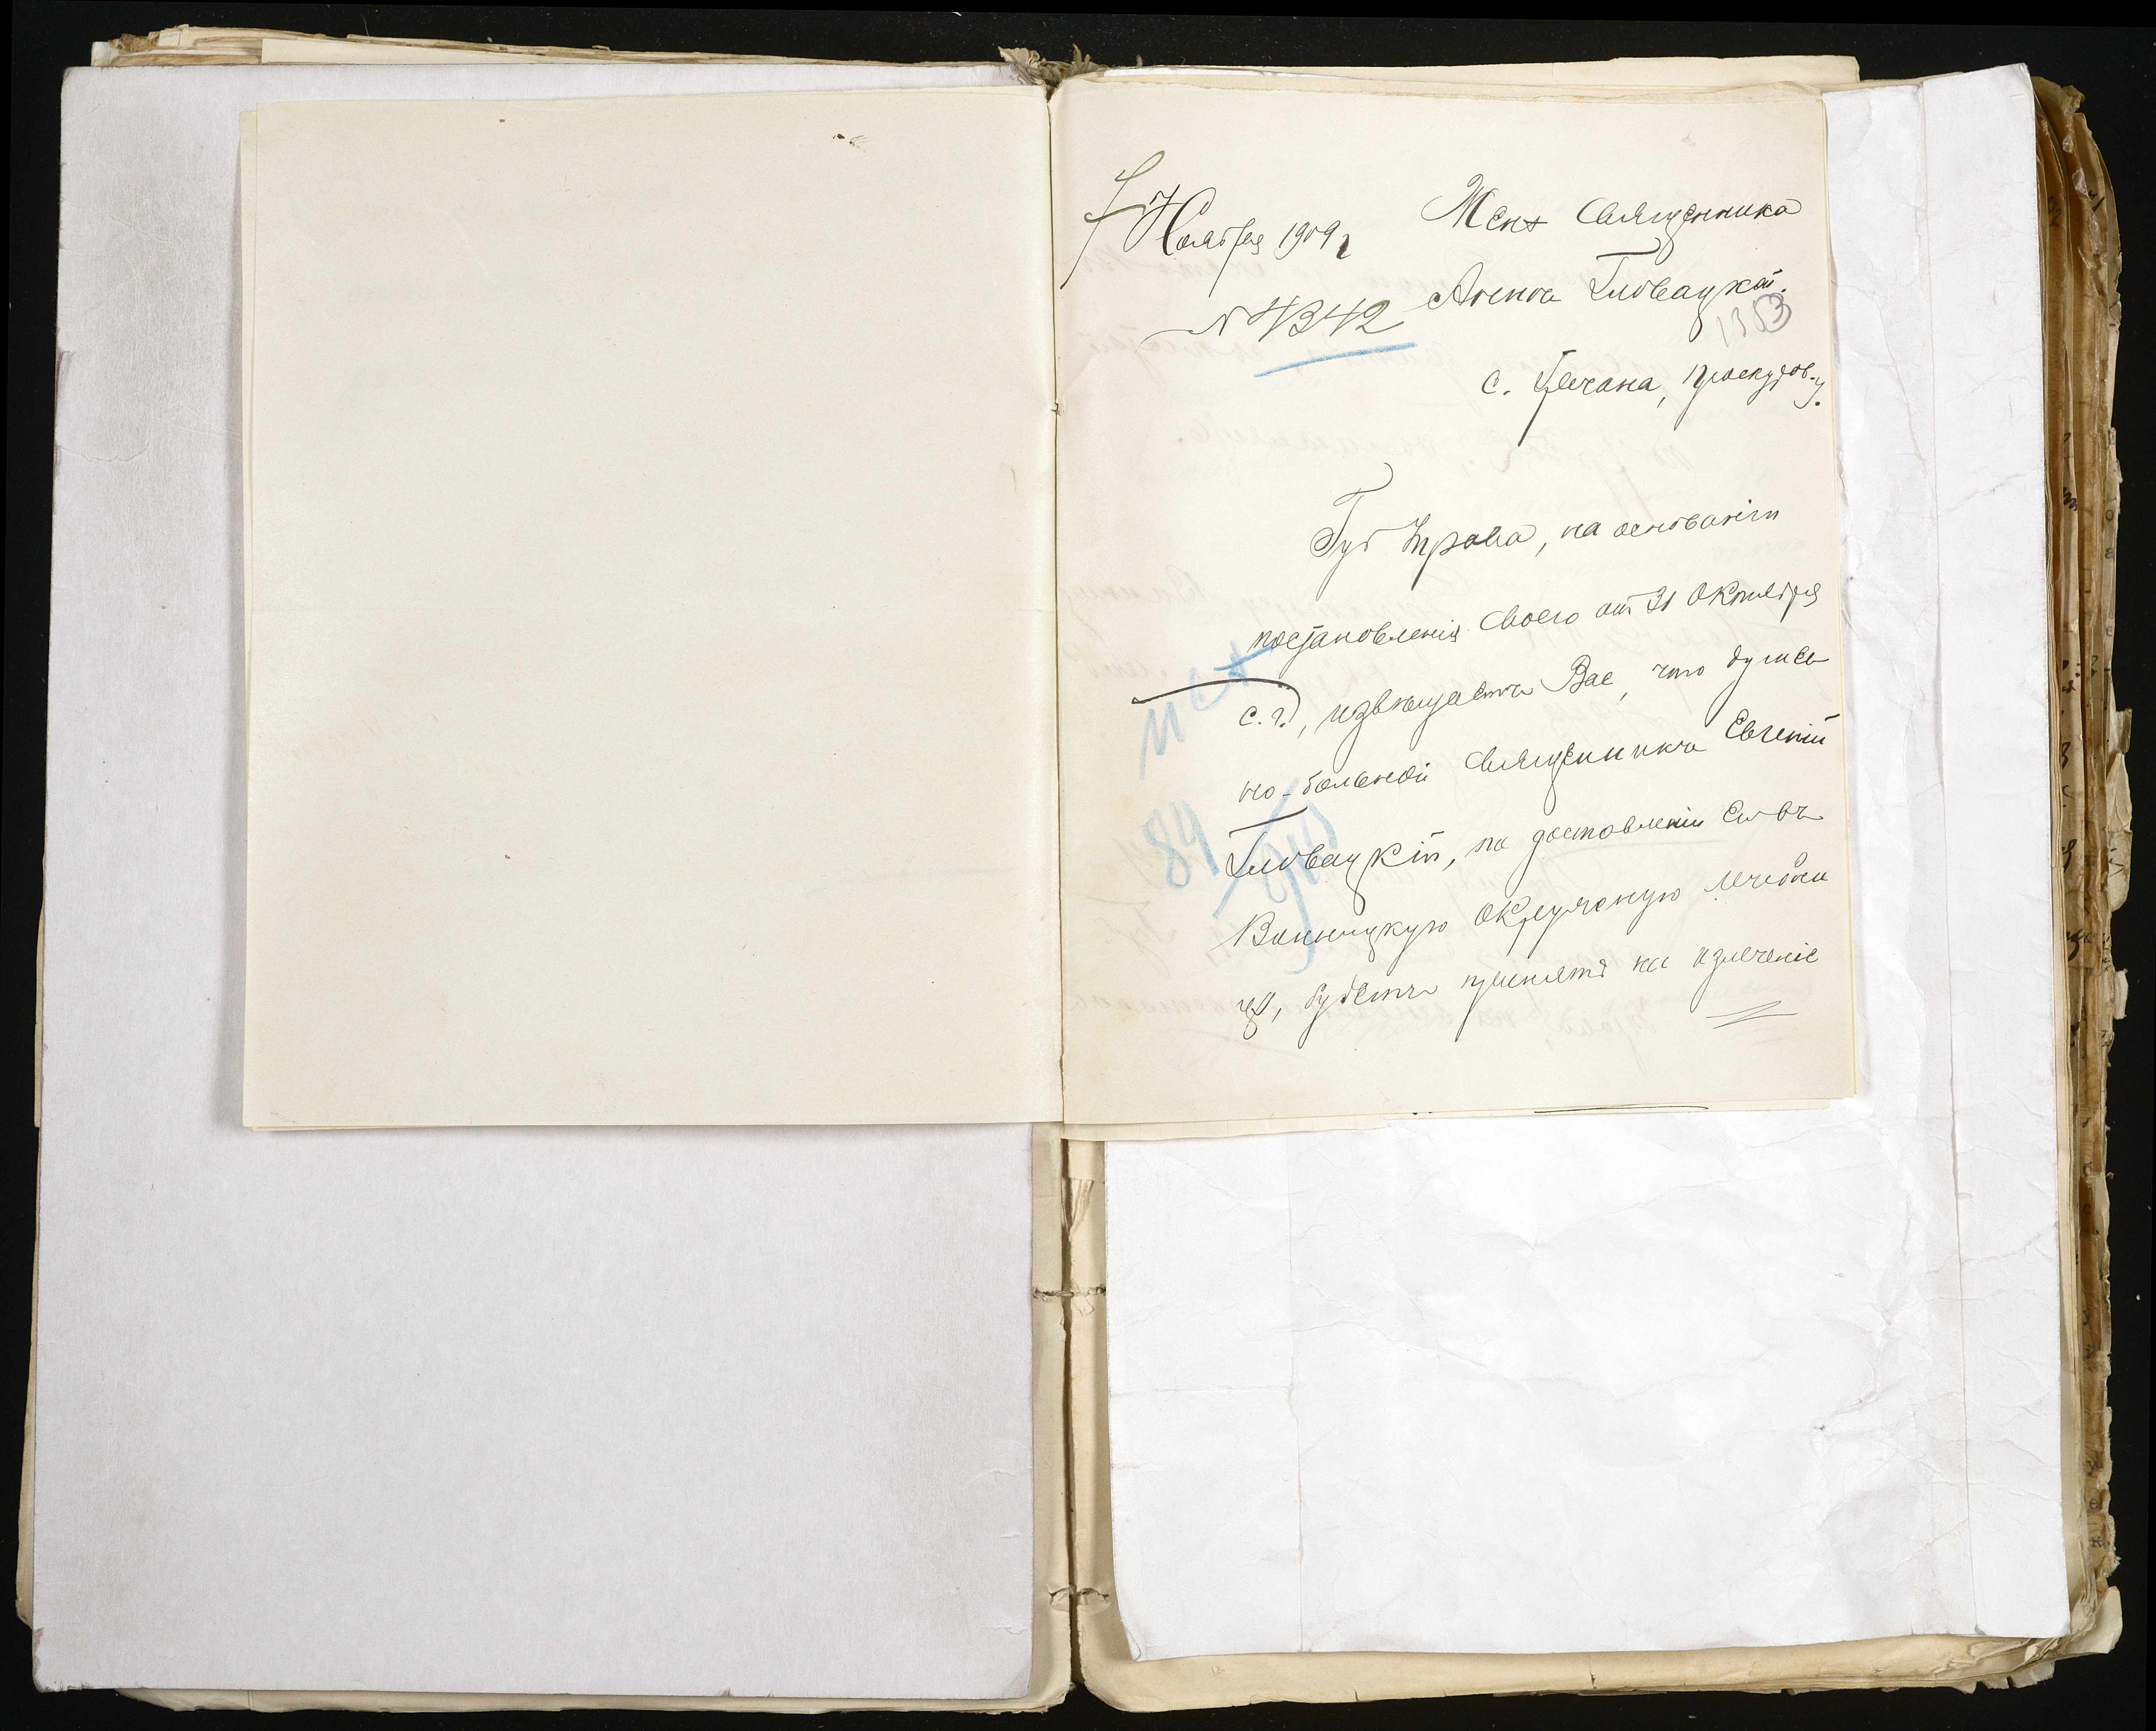 7 Ноября 1909 г
№ 4342
Женѣ Священника
Гловацкой.
1353
с. Гречана, Проскуров. у.
Губ Управа, на основаніи
постановленія своего от 31 Октября
с. г., извѣщаетъ Вас, что душев
но-больной Священникъ Евгеній
Гловацкій, по доставленіи его въ
Винницкую Окружную лечебни
цу, будетъ принятъ на излеченіе